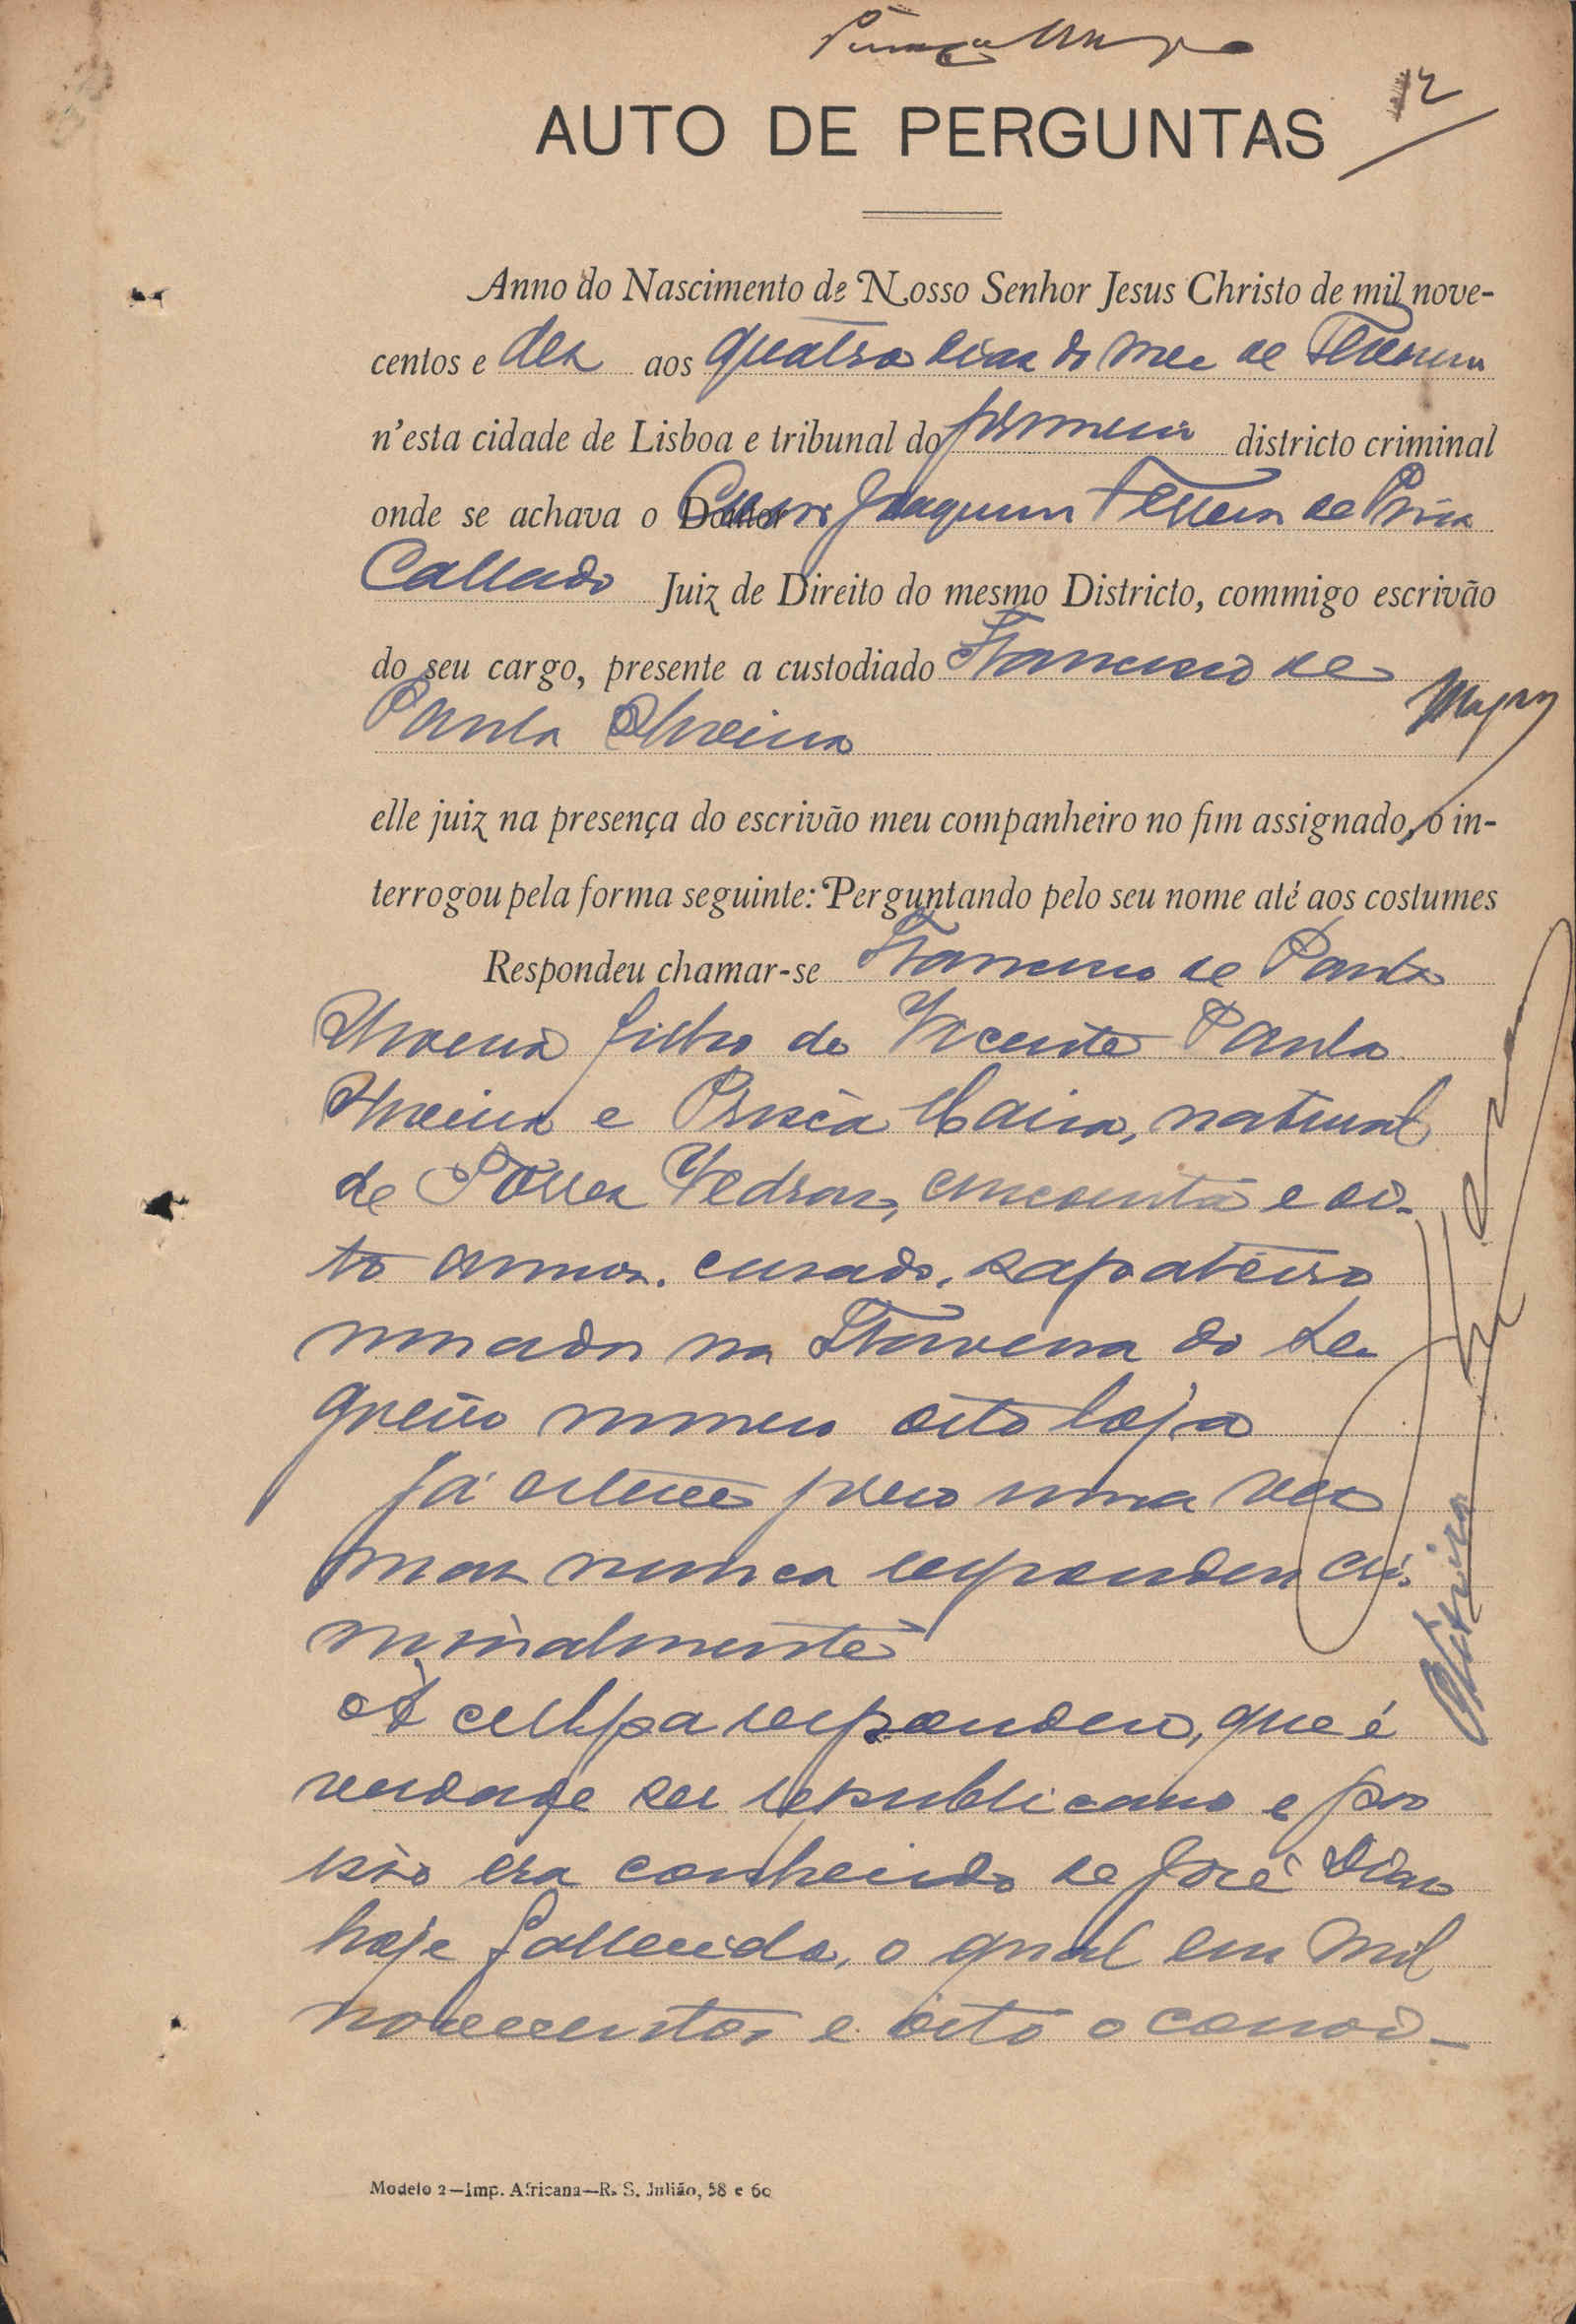 12
AUTO DE PERGUNTAS
Anno do Nascimento de Nosso Senhor Jesus Christo de mil nove-
centos e dez aos quatro dias do mez de Fevereiro
n'esta cidade de Lisboa e tribunal do primeiro districto criminal
onde se achava o Doutor Joaquim Ferreira de Pina
Callado Juiz de Direito do mesmo Districto, commigo escrivão
do seu cargo, presente a custodiado Francisco de
Paula Oliveira
elle juiz na presença do escrivão meu companheiro no fim assignado, o in-
terrogou pela forma seguinte: Perguntando pelo seu nome até aos costumes
Respondeu chamar-se Francisco de Paula
Oliveira filho de Vicente Paula
Oliveira e Prisca Maria, natural
de Torres Vedras, cincoenta e oi-
to annos. casado, sapateiro
morador na Travessa do Se-
queiro numero oito loja
Já esteve preso uma vez
mas nunca respondeu cri-
minalmente
Á culpa respondeu, que é
verdade ser republicano e por
isso era conhecido de José Dias
hoje fallecido, o qual em mil
novecentos e oito o convi-
Oliveira
Modelo 2—Imp. Africana—R. S. Julião, 58 e 60